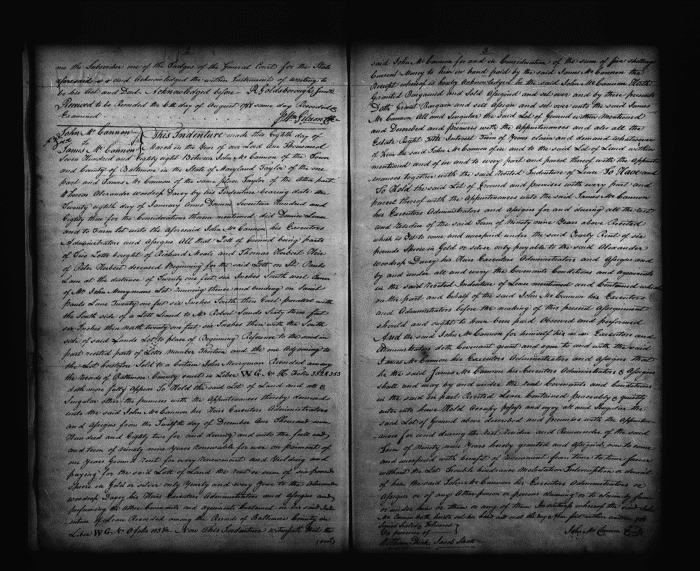 me the Subscriber one of the Judges of the General Court for the State
aforesaid and Acknowledged the within Instrument of writing to
be his Act and Deed. Acknowledged before R Goldsborough Junr
Received to be Recorded the 6th day of August 1788 same day Recorded &
Examined
John McCannon
to
James McCannon
This Indenture made this Eighth day of
March in the Year of our Lord One Thousand
Seven Hundred and Eighty eight Between John McCannon of the Town
and County of Baltimore in the State of Maryland Taylor of the one
part and James McCannon of the same place Taylor of the other part
Whereas Alexander Dacey by his Indenture bearing date the
Twenty eighth day of January One Thousand Seventeen Hundred and
Eighty three for the Considerations therein mentioned did Demise Lease
and to Farm let unto the aforesaid John McCannon his Executors
Administrators and Assigns All that Lott of Ground being parts
of Two Lotts bought of Richard Moale and Thomas Harbert Heir
of Peter Harbert deceased Beginning for the said Lott on St. Pauls
Lane at the distance of Twenty one feet six Inches South
of Mr John Merrymans Lot running thence and binding on Saint
Pauls Lane Twenty one feet six Inches South then East parallel with
the South side of a Lott Leased to Mr Robert Lands Sixty three feet
six Inches then North twenty one feet six Inches then with the South
side of said Lands Lot to place of Beginning Reference to the
part recited part of Lotts Number Thirteen and the one Adjoining to
the Lot Leased to a Certain John Merryman Recorded among
the Records of Baltimore County Court in Liber W G No
doth more fully appear To Hold the said Lot of Land and all &
Singular other the premises with the Appurtenances thereby demised
unto the said John McCannon his Heirs Executors Administrators
and Assigns from the Twelfth day of December One Thousand seven
Hundred and Eighty two for and during and unto the full end
and term of ninety nine Years renewable for ever on payment of
one Years Ground Rent for every renewment and Yielding and
paying for the said Lott of Land the rent or sum of six pounds
Specie in Gold or silver only Yearly and every Year to the Alexander
Dacey his Heirs Executors Administrators and Assigns and
performing the other Covenants and agreements contained in the said Inden-
ture Whereon Recorded among the Records of Baltimore County in
Liber W G No Now this Indenture witnesseth that the
said John McCannon for and in Consideration of the sum of five shillings
Current Money to him in hand paid by the said James McCannon the
Receipt whereof is hereby Acknowledged he the said John McCannon Hath
Granted Bargained and Sold Assigned and set over and by these presents
Doth Grant Bargain and sell Assign and set over unto the said James
McCannon All and Singular the Said Lot of Ground within Mentioned
and Described and premises with the Appurtenances and also all the
Estate Right Title Interest Term of Years claim and demand whatsoever
of him the said John McCannon of in and to the said Lot of Land within
mentioned and of in and to every part and parcel thereof with the appurte-
nances together with the said Recited Indenture of Lease To Have and
To Hold the said Lot of Ground and premises with every part and
parcel thereof with the Appurtenances unto the said James McCannon
his Executors Administrators and Assigns for and during all the rest
and residue of the said Term of Ninety nine Years above Recited
which is yet to come and unexpired under the said Yearly Rent of six
pounds Specie in Gold or silver only payable to the said Alexander
Dacey his Heirs Executors Administrators and Assigns and
by and under all and every the Covenants Conditions and agreements
in the said recited Indenture of Lease mentioned and Contained which
on the part and behalf of the said John McCannon his Executors
and Administrators before the making of this present Assignment
should and ought to have been paid Observed and performed
And the said John McCannon for himself his Executors and
Administrators doth Covenant grant and agree to and with the said
James McCannon his Executors Administrators and Assigns that
he the said James McCannon his Executors Administrators & Assigns
shall and may by and under the said Covenants and Conditions
in the said in part Recited Lease Contained peaceably & quietly
enter into have Hold Occupy possess and enjoy all and Singular the
said Lot of Ground above described and premises with the Appurten-
ances for and during the rest residue and Remainder of the said
Term of Ninety nine Years hereby granted and Assigned to come
and unexpired with benefit of renewment from time to time forever
without the Let Trouble hindrance Molestation Interruption or denial
of him the said John McCannon his Executors Administrators or
Assigns or of any Other person or persons claiming or to claim by from
or under him or them or any of them In witness whereof the said John
McCannon hath hereto set his hand and seal the day & Year first within written 1788
Signed Sealed & Delivered
In presence of
John McCannon